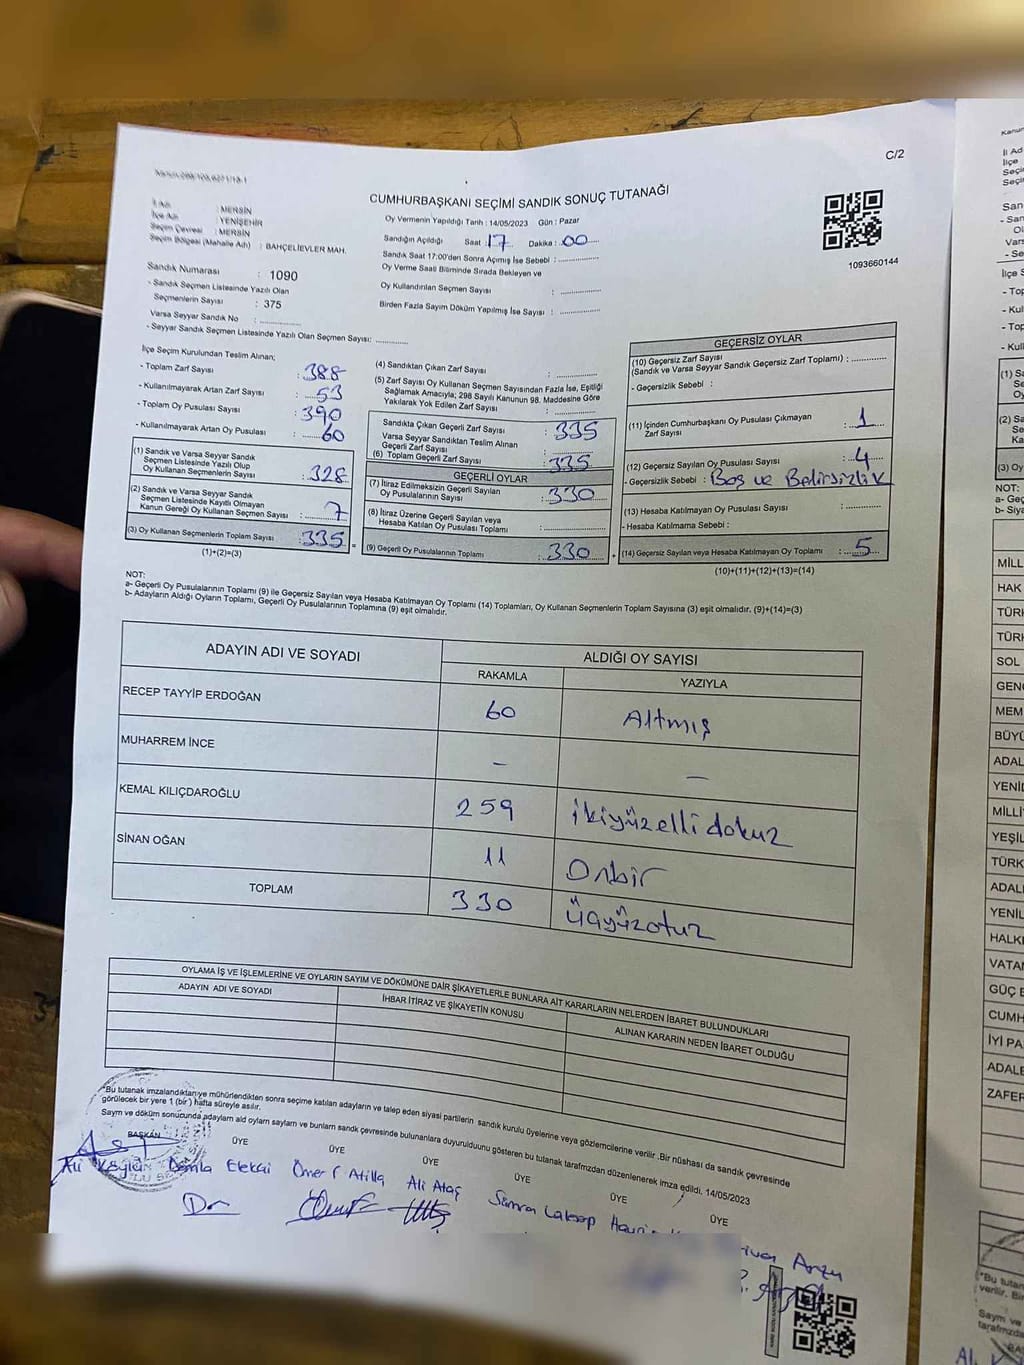 C/2
CUMHURBAŞKANI SEÇİMİ SANDIK SONUÇ TUTANAĞI
İl Adı : MERSİN
İlçe Adı : YENİŞEHİR
Seçim Çevresi : MERSİN
Seçim Bölgesi (Mahalle Adı) : BAHÇELİEVLER MAH.
Sandık Numarası : 1090
- Sandık Seçmen Listesinde Yazılı Olan
Seçmenlerin Sayısı : 375
Varsa Seyyar Sandık No : ..............
- Seyyar Sandık Seçmen Listesinde Yazılı Olan Seçmen Sayısı: ..............
Oy Vermenin Yapıldığı Tarih : 14/05/2023 Gün : Pazar
Sandığın Açıldığı Saat : 17 Dakika : 00
Sandık Saat 17:00'den Sonra Açımış İse Sebebi : ..............
Oy Verme Saati Bitiminde Sırada Bekleyen ve
Oy Kullandırılan Seçmen Sayısı : ..............
Birden Fazla Sayım Döküm Yapılmış İse Sayısı : ..............
1093660144
İlçe Seçim Kurulundan Teslim Alınan;
- Toplam Zarf Sayısı : 388
- Kullanılmayarak Artan Zarf Sayısı : 53
- Toplam Oy Pusulası Sayısı : 390
- Kullanılmayarak Artan Oy Pusulası : 60
(1) Sandık ve Varsa Seyyar Sandık
Seçmen Listesinde Yazılı Olup
Oy Kullanan Seçmenlerin Sayısı : 328
(2) Sandık ve Varsa Seyyar Sandık
Seçmen Listesinde Kayıtlı Olmayan
Kanun Gereği Oy Kullanan Seçmen Sayısı : 7
(3) Oy Kullanan Seçmenlerin Toplam Sayısı : 335
(1)+(2)=(3)
(4) Sandıktan Çıkan Zarf Sayısı : ..............
(5) Zarf Sayısı Oy Kullanan Seçmen Sayısından Fazla İse, Eşitliği
Sağlamak Amacıyla; 298 Sayılı Kanunun 98. Maddesine Göre
Yakılarak Yok Edilen Zarf Sayısı : ..............
Sandıkta Çıkan Geçerli Zarf Sayısı : 335
Varsa Seyyar Sandıktan Teslim Alınan
Geçerli Zarf Sayısı : ..............
(6) Toplam Geçerli Zarf Sayısı : 335
GEÇERLİ OYLAR
(7) İtiraz Edilmeksizin Geçerli Sayılan
Oy Pusulalarının Sayısı : 330
(8) İtiraz Üzerine Geçerli Sayılan veya
Hesaba Katılan Oy Pusulası Toplamı : ..............
(9) Geçerli Oy Pusulalarının Toplamı : 330
GEÇERSİZ OYLAR
(10) Geçersiz Zarf Sayısı
(Sandık ve Varsa Seyyar Sandık Geçersiz Zarf Toplamı) : ..............
- Geçersizlik Sebebi :
(11) İçinden Cumhurbaşkanı Oy Pusulası Çıkmayan
Zarf Sayısı : 1
(12) Geçersiz Sayılan Oy Pusulası Sayısı : 4
- Geçersizlik Sebebi : Boş ve Belirsizlik
(13) Hesaba Katılmayan Oy Pusulası Sayısı : ..............
- Hesaba Katılmama Sebebi :
(14) Geçersiz Sayılan veya Hesaba Katılmayan Oy Toplamı : 5
(10)+(11)+(12)+(13)=(14)
NOT:
a- Geçerli Oy Pusulalarının Toplamı (9) ile Geçersiz Sayılan veya Hesaba Katılmayan Oy Toplamı (14) Toplamları, Oy Kullanan Seçmenlerin Toplam Sayısına (3) eşit olmalıdır. (9)+(14)=(3)
b- Adayların Aldığı Oyların Toplamı, Geçerli Oy Pusulalarının Toplamına (9) eşit olmalıdır.
ADAYIN ADI VE SOYADI ALDIĞI OY SAYISI
RAKAMLA YAZIYLA
RECEP TAYYİP ERDOĞAN 60 Altmış
MUHARREM İNCE - -
KEMAL KILIÇDAROĞLU 259 ikiyüzelli dokuz
SİNAN OĞAN 11 Onbir
TOPLAM 330 üçyüzotuz
OYLAMA İŞ VE İŞLEMLERİNE VE OYLARIN SAYIM VE DÖKÜMÜNE DAİR ŞİKAYETLERLE BUNLARA AİT KARARLARIN NELERDEN İBARET BULUNDUKLARI
ADAYIN ADI VE SOYADI İHBAR İTİRAZ VE ŞİKAYETİN KONUSU ALINAN KARARIN NEDEN İBARET OLDUĞU
*Bu tutanak imzalandıktan ve mühürlendikten sonra seçime katılan adayların ve talep eden siyasi partilerin sandık kurulu üyelerine veya gözlemcilerine verilir .Bir nüshası da sandık çevresinde
görülecek bir yere 1 (bir ) hafta süreyle asılır.
Sayım ve döküm sonucunda adayların aldı oyların sayların ve bunların sandk çevresinde bulunanlara duyurulduunu gösteren bu tutanak tarafmzdan düzenlenerek imza edildi. 14/05/2023
BAŞKAN ÜYE ÜYE ÜYE ÜYE ÜYE ÜYE
Ali Damla Elekçi Ömer F Atilla Ali Ataç
Arzu
MİLL
HAK
TÜR
TÜR
SOL
GEN
MEM
BÜYÜ
ADAL
YENİD
MİLLİ
YEŞİL
TÜRK
ADAL
YENİL
HALK
VATA
GÜÇ B
CUMH
İYİ PA
ADALE
ZAFER